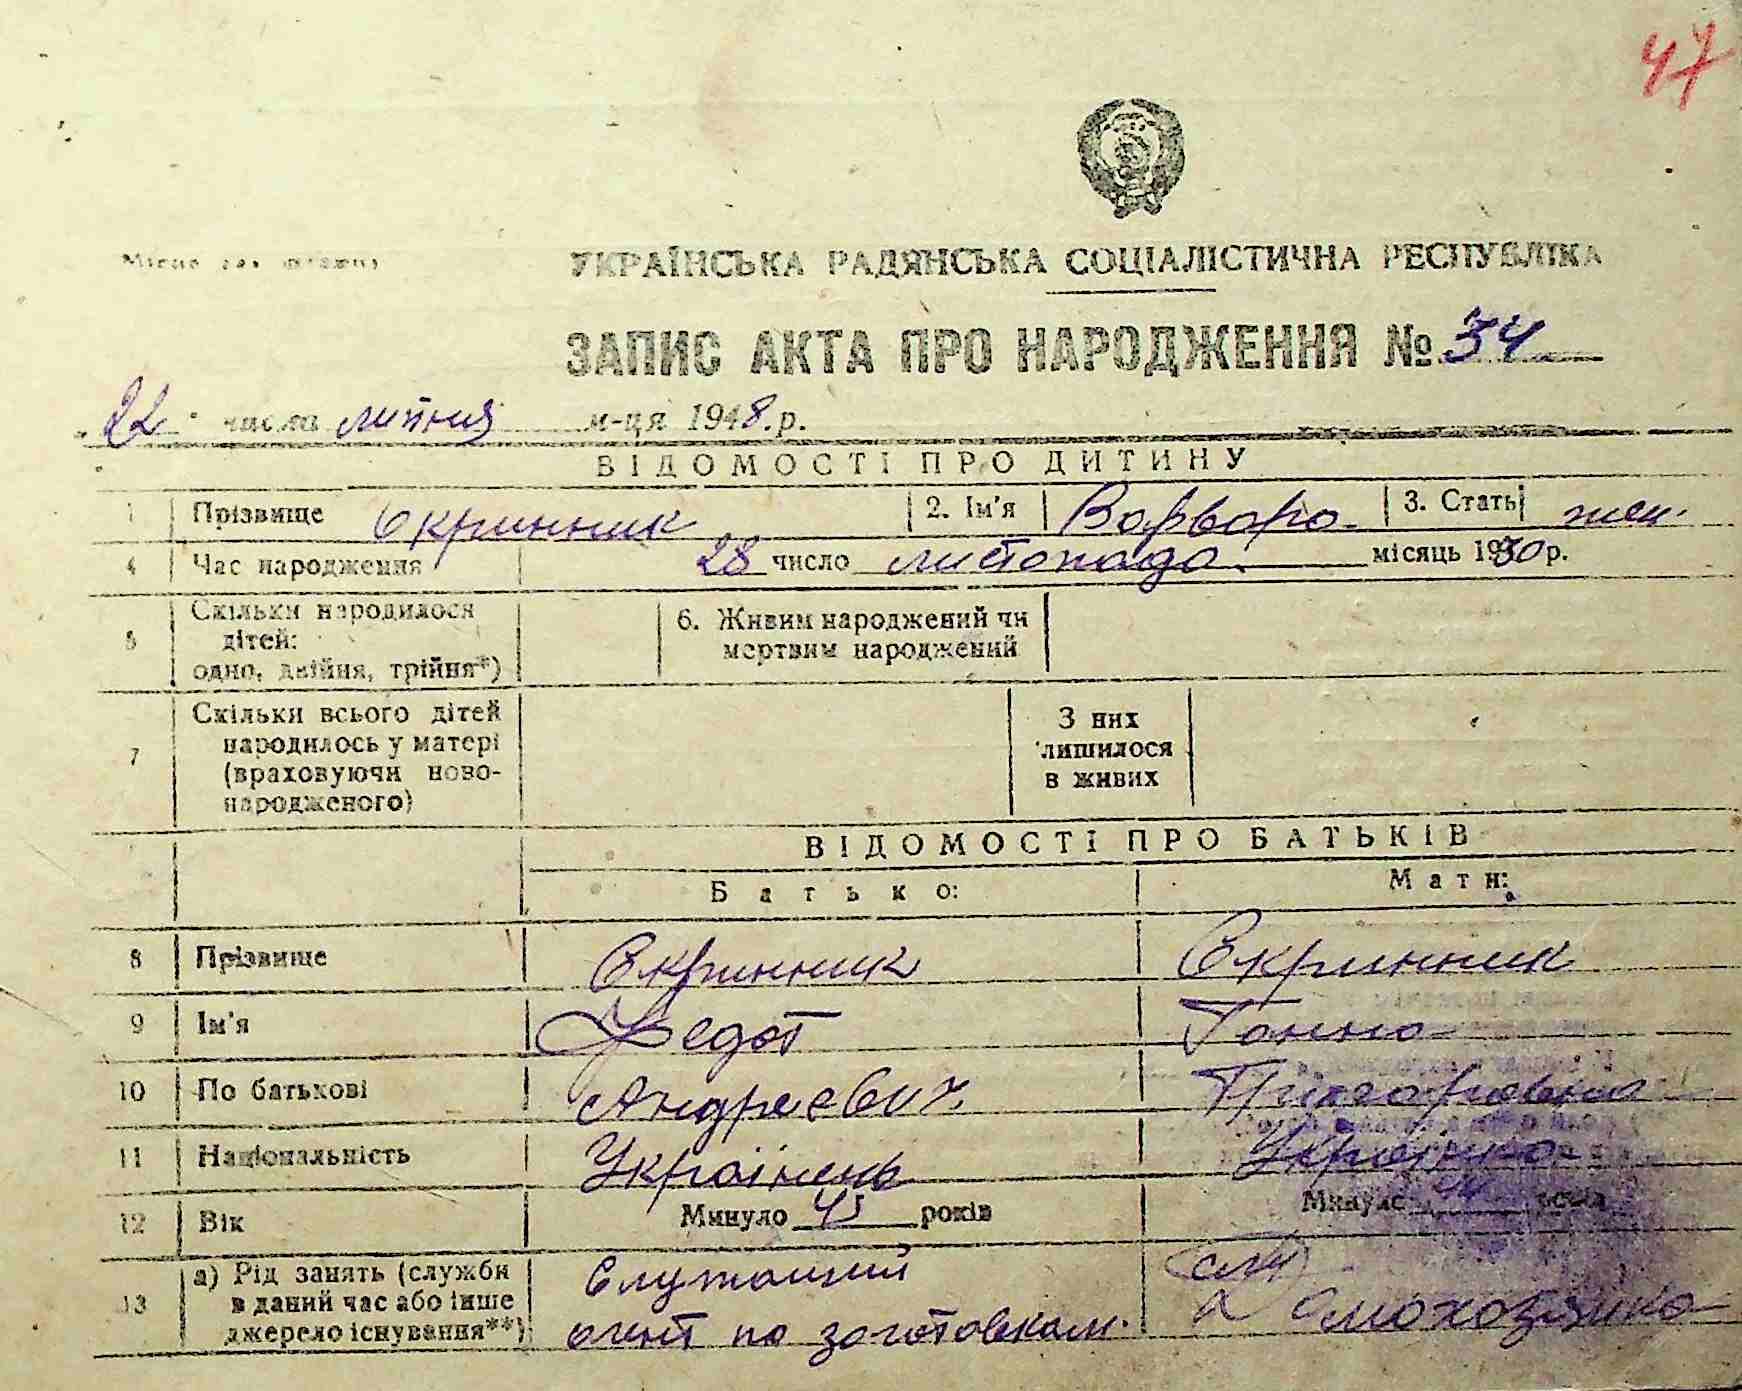 47
УКРАЇНСЬКА РАДЯНСЬКА СОЦІАЛІСТИЧНА РЕСПУБЛІКА
ЗАПИС АКТА ПРО НАРОДЖЕННЯ № 34
„22" числа липня м-ця 1948.р.
ВІДОМОСТІ ПРО ДИТИНУ
1 Прізвище Скринник 2. Ім'я Варвара 3. Стать жен.
4 Час народження 28 число листопада місяць 1930 р.
5 Скільки народилося дітей: одно, двійня, трійня*) 6. Живим народжений чи мертвим народжений
7 Скільки всього дітей народилось у матері (враховуючи новонародженого) З них лишилося в живих
ВІДОМОСТІ ПРО БАТЬКІВ
Батько: Мати:
8 Прізвище Скринник Скринник
9 Ім'я Федот Ганна
10 По батькові Андреевич Григоровна
11 Національність Українець Українка
12 Вік Минуло 45 років Минуло років
13 а) Рід занять (служби Служащий
в даний час або інше
джерело існування**) агент по заготовкам. Домохозяйка